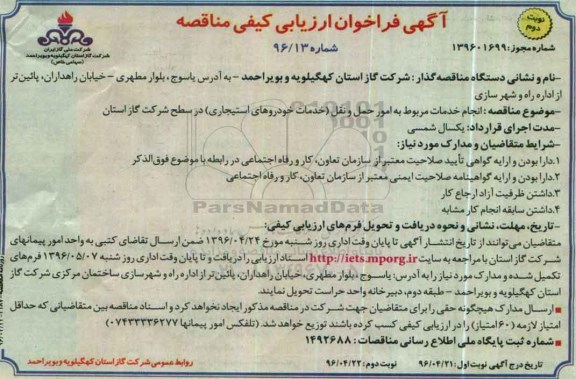 آگهی فراخوان ارزیابی کیفی مناقصه
شماره ۹۶/۱۳
نوبت دوم
شماره مجوز: ۱۳۹۶۰۱۶۹۹
شرکت ملی گاز ایران
شرکت گاز استان کهگیلویه و بویراحمد
(سهامی خاص)
-نام و نشانی دستگاه مناقصه گذار: شرکت گاز استان کهگیلویه و بویراحمد - به آدرس یاسوج، بلوار مطهری - خیابان راهداران، پائین‌تر
از اداره راه و شهر سازی
-موضوع مناقصه: انجام خدمات مربوط به امور حمل و نقل (خدمات خودروهای استیجاری) در سطح شرکت گاز استان
-مدت اجرای قرارداد: یکسال شمسی
-شرایط متقاضیان و مدارک مورد نیاز:
۱.دارا بودن و ارایه گواهی تأیید صلاحیت معتبر از سازمان تعاون، کار و رفاه اجتماعی در رابطه با موضوع فوق‌الذکر
۲.دارا بودن و ارایه گواهینامه صلاحیت ایمنی معتبر از سازمان تعاون، کار و رفاه اجتماعی
۳.داشتن ظرفیت آزاد ارجاع کار
۴.داشتن سابقه انجام کار مشابه
ParsNamadData
-تاریخ، مهلت، نشانی و نحوه دریافت و تحویل فرم‌های ارزیابی کیفی:
متقاضیان می‌توانند از تاریخ انتشار آگهی تا پایان وقت اداری روز شنبه مورخ ۱۳۹۶/۰۴/۲۴ ضمن ارسال تقاضای کتبی به واحد امور پیمانهای
شرکت گاز استان با مراجعه به سایت http://iets.mporg.ir اسناد ارزیابی را دریافت و تا پایان وقت اداری روز شنبه ۱۳۹۶/۰۵/۰۷ فرم‌های
تکمیل شده و مدارک مورد نیاز را به آدرس: یاسوج، بلوار مطهری، خیابان راهداران، پائین‌تر از اداره راه و شهرسازی ساختمان مرکزی شرکت گاز
استان کهگیلویه و بویراحمد - طبقه دوم، دبیرخانه واحد حراست تحویل نمایند.
ارسال مدارک هیچگونه حقی را برای متقاضیان جهت شرکت در مناقصه مذکور ایجاد نخواهد کرد و اسناد مناقصه بین متقاضیانی که حداقل
امتیاز لازمه (۶۰ امتیاز) را در ارزیابی کیفی کسب کرده باشند توزیع خواهد شد. (تلفکس امور پیمانها ۰۷۴۳۳۳۳۶۲۷۷)
شماره ثبت پایگاه ملی اطلاع رسانی مناقصات: ۱۴۹۲۶۸۸
تاریخ درج آگهی نوبت اول: ۹۶/۰۴/۲۱ نوبت دوم: ۹۶/۰۴/۲۲
روابط عمومی شرکت گاز استان کهگیلویه و بویراحمد